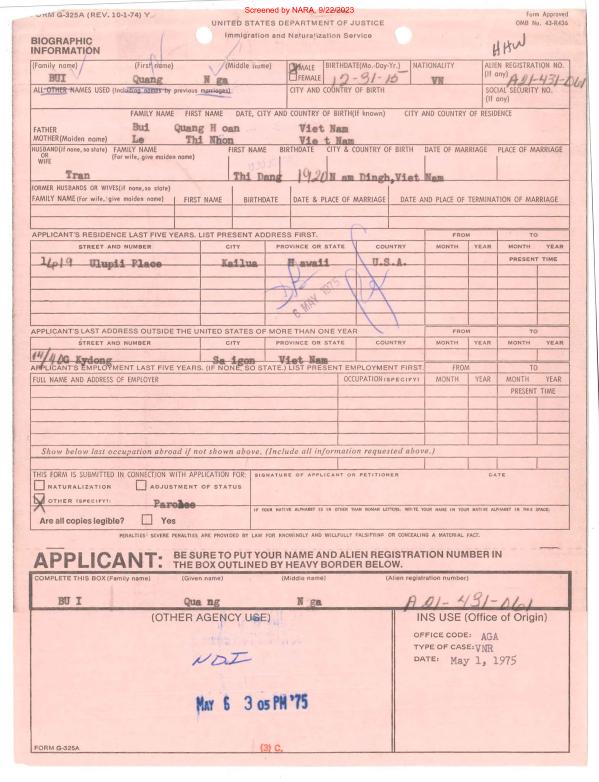 Screened by NARA, 9/22/2023
FORM G-325A (REV. 10-1-74) Y
Form Approved
OMB No. 43-R436
UNITED STATES DEPARTMENT OF JUSTICE
Immigration and Naturalization Service
BIOGRAPHIC INFORMATION
HHW
(Family name) (First name) (Middle name) MALE FEMALE BIRTHDATE(Mo.-Day-Yr.) NATIONALITY ALIEN REGISTRATION NO. (If any)
BUI Quang N ga 12-31-15 VN A21-431-061
ALL OTHER NAMES USED (Including names by previous marriages) CITY AND COUNTRY OF BIRTH SOCIAL SECURITY NO. (If any)
FAMILY NAME FIRST NAME DATE, CITY AND COUNTRY OF BIRTH(If known) CITY AND COUNTRY OF RESIDENCE
FATHER Bui Quang H oan Viet Nam
MOTHER(Maiden name) Le Thi Nhon Vie t Nam
HUSBAND(If none, so state) OR WIFE FAMILY NAME (For wife, give maiden name) FIRST NAME BIRTHDATE CITY & COUNTRY OF BIRTH DATE OF MARRIAGE PLACE OF MARRIAGE
Tran Thi Dang 1920 N am Dingh,Viet Nam
FORMER HUSBANDS OR WIVES(if none,so state)
FAMILY NAME (For wife, give maiden name) FIRST NAME BIRTHDATE DATE & PLACE OF MARRIAGE DATE AND PLACE OF TERMINATION OF MARRIAGE
APPLICANT'S RESIDENCE LAST FIVE YEARS. LIST PRESENT ADDRESS FIRST. FROM TO
STREET AND NUMBER CITY PROVINCE OR STATE COUNTRY MONTH YEAR MONTH YEAR
1419 Ulupii Place Kailua H awaii U.S.A. PRESENT TIME
6 MAY 1975
APPLICANT'S LAST ADDRESS OUTSIDE THE UNITED STATES OF MORE THAN ONE YEAR FROM TO
STREET AND NUMBER CITY PROVINCE OR STATE COUNTRY MONTH YEAR MONTH YEAR
DG Kydong Sa igon Viet Nam
APPLICANT'S EMPLOYMENT LAST FIVE YEARS. (IF NONE, SO STATE.) LIST PRESENT EMPLOYMENT FIRST. FROM TO
FULL NAME AND ADDRESS OF EMPLOYER OCCUPATION (SPECIFY) MONTH YEAR MONTH YEAR
PRESENT TIME
Show below last occupation abroad if not shown above. (Include all information requested above.)
THIS FORM IS SUBMITTED IN CONNECTION WITH APPLICATION FOR: SIGNATURE OF APPLICANT OR PETITIONER DATE
NATURALIZATION ADJUSTMENT OF STATUS
OTHER (SPECIFY): Parolee
IF YOUR NATIVE ALPHABET IS IN OTHER THAN ROMAN LETTERS, WRITE YOUR NAME IN YOUR NATIVE ALPHABET IN THIS SPACE:
Are all copies legible? Yes
PENALTIES: SEVERE PENALTIES ARE PROVIDED BY LAW FOR KNOWINGLY AND WILLFULLY FALSIFYING OR CONCEALING A MATERIAL FACT.
APPLICANT: BE SURE TO PUT YOUR NAME AND ALIEN REGISTRATION NUMBER IN
THE BOX OUTLINED BY HEAVY BORDER BELOW.
COMPLETE THIS BOX (Family name) (Given name) (Middle name) (Alien registration number)
BU I Qua ng N ga A 21-431-061
(OTHER AGENCY USE) INS USE (Office of Origin)
NDI
MAY 6 3 05 PM '75
OFFICE CODE: AGA
TYPE OF CASE: VNR
DATE: May 1, 1975
FORM G-325A
(3) C.